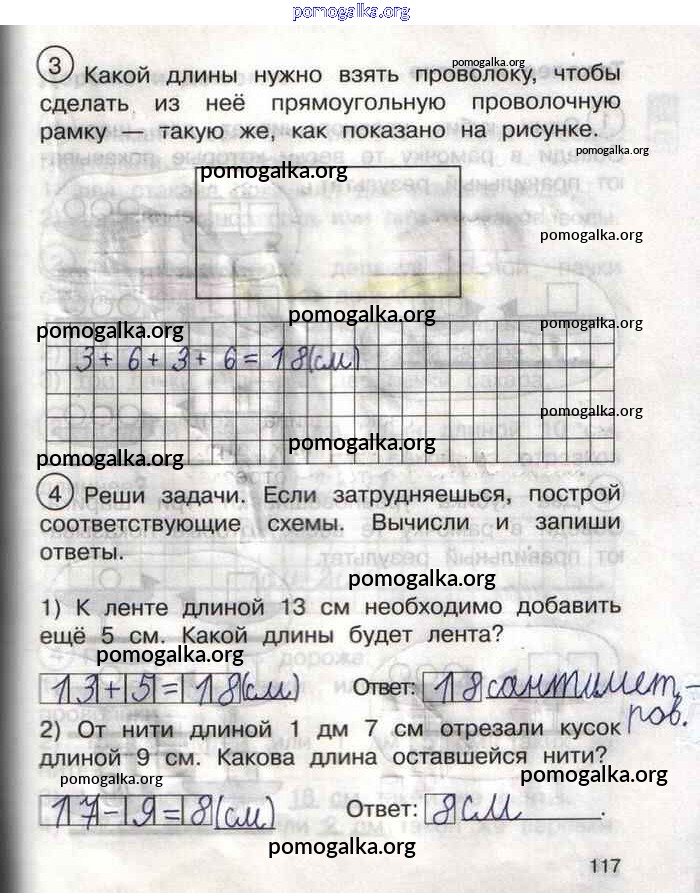 pomogalka.org
3 Какой длины нужно взять проволоку, чтобы
pomogalka.org
сделать из неё прямоугольную проволочную
рамку — такую же, как показано на рисунке.
pomogalka.org
pomogalka.org
pomogalka.org
pomogalka.org
pomogalka.org
3+6+3+6=18(см)
pomogalka.org
pomogalka.org
pomogalka.org
4 Реши задачи. Если затрудняешься, построй
соответствующие схемы. Вычисли и запиши
ответы.
pomogalka.org
1) К ленте длиной 13 см необходимо добавить
ещё 5 см. Какой длины будет лента?
pomogalka.org
13+5=18(см) Ответ: 18 сантимет-
ров.
2) От нити длиной 1 дм 7 см отрезали кусок
длиной 9 см. Какова длина оставшейся нити?
pomogalka.org
pomogalka.org
17-9=8(см) Ответ: 8 см.
pomogalka.org
117